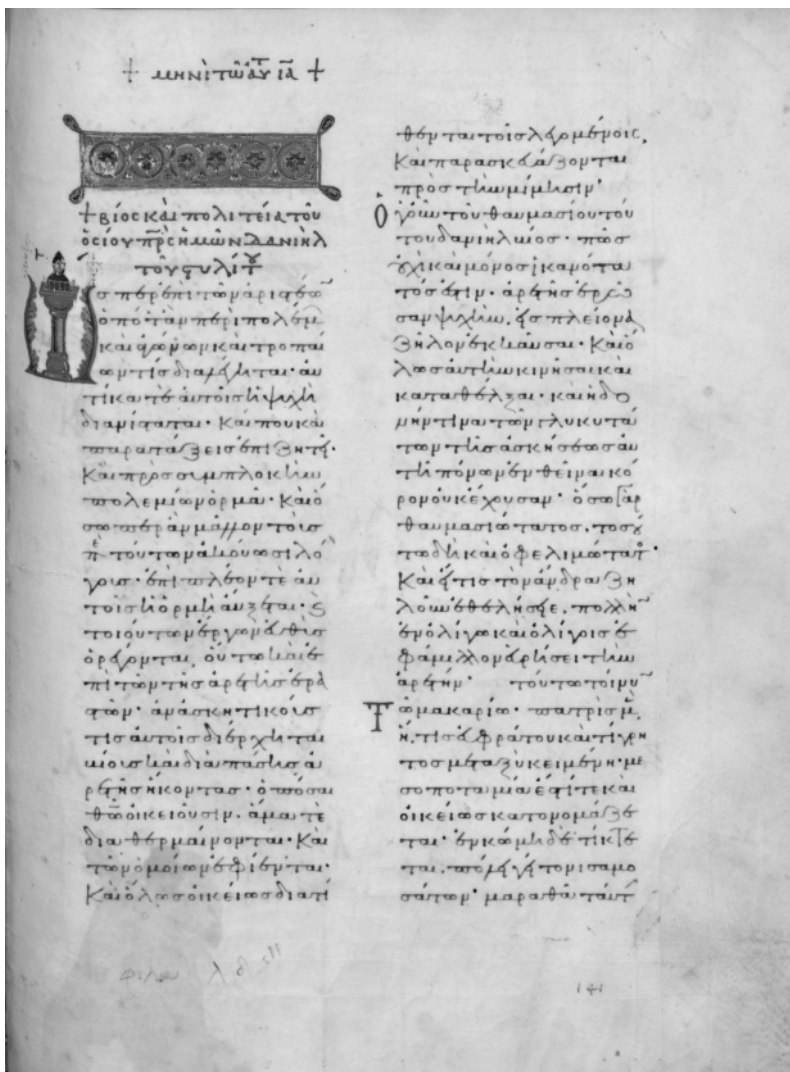 + μηνὶ τῶ αὐτῶ ια +
+ βίος καὶ πολιτεία τοῦ
ὁσίου πρς ἡμῶν δανιὴλ
τοῦ στυλίτου
σπερ ἐπὶ τῶν ἀριστέων
ὁπόταν περὶ πολέμων
καὶ ἀγώνων καὶ τροπαί
ων τίς διαλέγηται· αὐ
τίκα τὲ αὐτοῖς ἡ ψυχὴ
διανίσταται· Καί που καὶ
παρατάξεις ἐπιζητεῖ·
Καὶ πρὸς συμπλοκὴν
πολεμίων ὁρμᾶ· Καὶ ὅ
σω περ ἂν μᾶλλον τοῖς
λό
γοις· ἐπιπλέον τὲ αὐ
τοῖς ἡ ὁρμὴ αὔξεται· 
τοιούτων ἔργων εὐθὺς
ὀρέγονται, οὕτω καὶ ἐ
πὶ τῶν τῆς ἀρετῆς ἐρα
στῶν· ἀν ἀσκητικοῖς
τίς αὐτοῖς διέρχηται
βίοις καὶ διὰ πάσης ἀ
ρετῆς ἥκοντας· ὁπόσαι
ἅμα τὲ
διαθερμαίνονται· Καὶ
τῶν ὁμοίων ἐφίενται·
Καὶ ὅλως οἰκείως διατί
θενται τοῖς λεγομένοις,
Καὶ παρασκευάζονται
πρὸς τὴν μίμησιν·
Ὁ γοῦν τοῦ θαυμασίου τού
του δανιὴλ βίος· πῶς
οὐχὶ καὶ μόνος ἱκανώτα
τός ἐστιν· ἀρετῆς ἐρῶ
σαν ψυχὴν, εἰς πλείονα
ζῆλον ἐκκαῦσαι· Καὶ ὅ
λως αὐτὴν κινῆσαι καὶ
καταθέλξαι· καὶ ἡδο
μήν τινα τῶν γλυκυτά
των τῆς ἀσκήσεως αὐ
τῆ πόνων ἐνθεῖναι κό
ρον οὐκ ἔχουσαν· ὅσω γὰρ
θαυμασιώτατος, τοσού
τω δὴ καὶ ὀφελιμώτατος·
Καὶ εἴ τις τὸν ἄνδρα ζη
λοῦν ἐθελήσειε, πολλὴν
ἐν ὀλίγω καὶ ὀλίγοις ἐ
φάμιλλον εὑρήσει τὴν
ἀρετήν· τούτω τοίνυν
Τῶ μακαρίω· πατρὶς μὲν
ἦν, τίς εὐφράτου καὶ τίγρη
τος μεταξὺ κειμένη· με
σοποταμία ἐστί τε καὶ
οἰκείως κατονομάζε
ται· ἐν κώμη δὲ τίκτε
ται, πόλει γείτονι σαμο
σάτων· μαραθὰ ταύτη
141